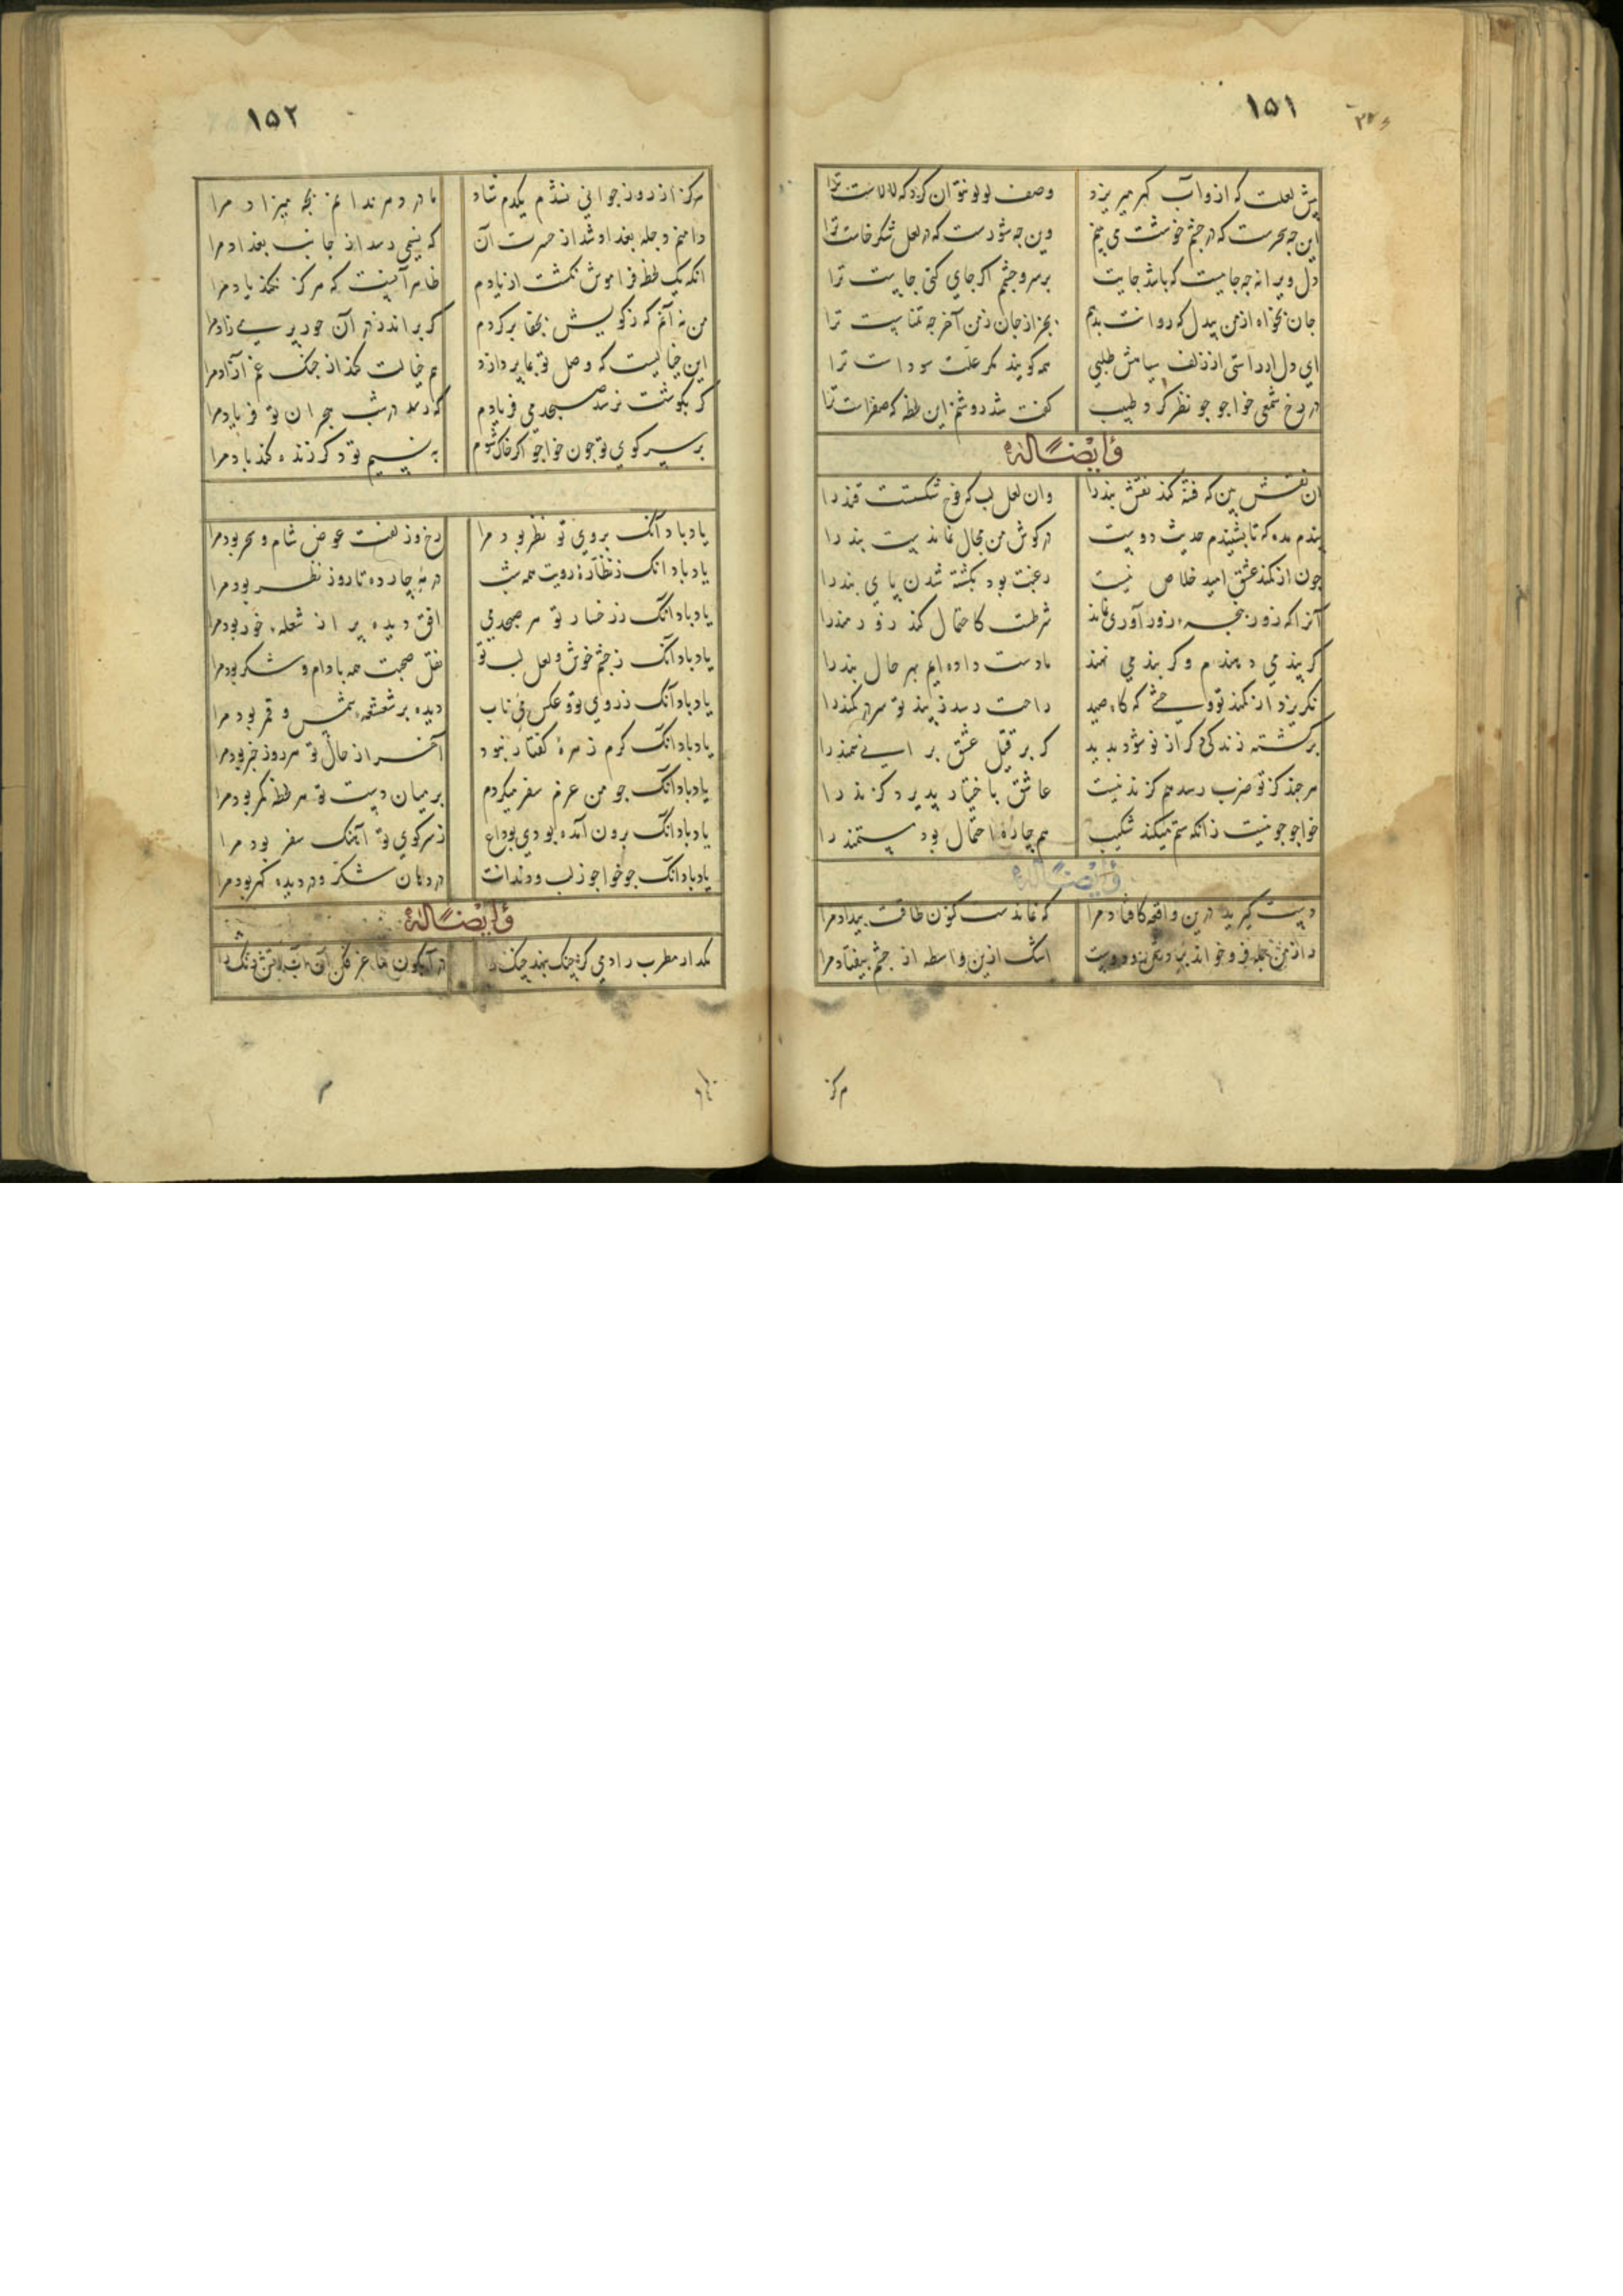 ١٥١
پیش لعلت که ازو آب گهر میریزد وصف لولو نتوان کرد که لالاست ترا
این چه سحرست که در چشم خوشت می بینم وین چه شورست که در لعل شکرخاست ترا
دل ویرانه چه جاییست که باشد جایت بر سر و چشم اگر جای کنی جاییست ترا
جان بخواه از من بیدل که روانت بدهم بجز از جان ز من آخر چه تمناییست ترا
ای دل ار راستی از زلف سیاهش طلبی همه گویند مگر علت سوداست ترا
در رخ شمعی خواجو چو نظر کرد طبیب گفت شد روشنم این لحظه که صفراست ترا
وایضاً له
آن نقش بین که فتنه کند نقش بند را وان لعل لب که نرخ شکستست قند را
پندم مده که تا بشنیدم حدیث دوست در گوش من مجال نماندست پند را
چون از کمند عشق امید خلاص نیست رغبت بود بکشته شدن پای بند را
آنرا که زور پنجه زورآوری نماند شرطست کاحتمال کند زورمند را
گر پند می دهندم و گر بند می نهند ما دست داده ایم بهر حال بند را
نگریزد از کمند تو وحشی که گاه صید راحت رسد ز بند تو سر در کمند را
برکشته زندگی دگر از نو شود پدید گر بر قتیل عشق برانی سمند را
هر چند کز تو ضرب رسد هم گزند نیست عاشق باختیار پذیرد گزند را
خواجو چو نیست زانکه ستم میکند شکیب هم چاره احتمال بود مستمند را
وایضاً له
دست گیرید درین واقعه کافتاد مرا که نماندست کنون طاقت بیداد مرا
راز من جمله فرو خواند بر دشمن و دوست اشک ازین واسطه از چشم بیفتاد مرا
هرگز
١٥٢
هرگز از روز جوانی نشدم یکدم شاد مادر دهر ندانم ز چه میزاد مرا
دامنم دجله بغداد شد از حسرت آن که نسیمی رسد از جانب بغداد مرا
آنکه یک لحظه فراموش نگشت از یادم ظاهر آنست که هرگز نکند یاد مرا
من نه آنم که ز کویش بجفا برگردم گر براند ز در آن حور پری زاد مرا
این خیالیست که وصل تو بما پردازد هم خیالت کند از چنگ غم آزاد مرا
گر بگوشت نرسد صبحدمی فریادم که رسد در شب هجران تو فریاد مرا
بر سر کوی تو چون خواجو اگر خاک شوم به نسیم تو دگر زنده کند باد مرا
یاد باد آنک بروی تو نظر بود مرا رخ و زلفت عوض شام و سحر بود مرا
یاد باد آنک ز نظاره رویت همه شب در مه چارده تا روز نظر بود مرا
یاد باد آنک ز رخسار تو هر صبحدمی افق دیده پر از شعله خور بود مرا
یاد باد آنک ز چشم خوش و لعل لب تو نقل صحبت همه بادام و شکر بود مرا
یاد باد آنک ز روی تو و عکس می ناب دیده پر شعشعه شمس و قمر بود مرا
یاد باد آنک گرم زهره گفتار نبود آخر از حال تو هر روز خبر بود مرا
یاد باد آنک چو من عزم سفر میکردم بر میان دست تو هر لحظه کمر بود مرا
یاد باد آنک برون آمده بودی بوداع ز سر کوی تو آهنگ سفر بود مرا
یاد باد آنک چو خواجو ز لب و دندانت در دهان شکر و در دیده گهر بود مرا
وایضاً له
مگذار مطرب را دمی کز چنگ بنهد چنگ را در آبگون ساغر فکن آن آب آتش رنگ را